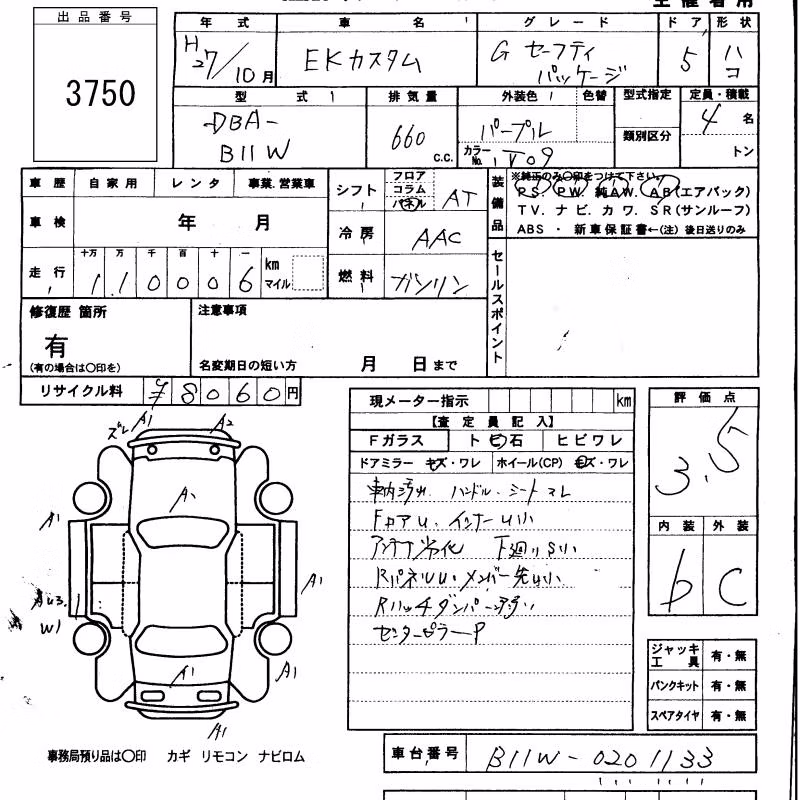 出品番号
3750
年式 車名 グレード ドア 形状
H27/10月 EKカスタム G セーフティ パッケージ 5 ハコ
型式 排気量 外装色 色替 型式指定 定員・積載
DBA-B11W 660 c.c. パープル カラーNo. 類別区分 4名
トン
車歴 自家用 レンタ 事業.営業車
シフト フロア コラム パネル AT
装備品 ※純正のみ〇印をつけて下さい。
PS. PW. 純AW. AB(エアバック)
TV. ナビ. カワ. SR(サンルーフ)
ABS ・ 新車保証書←(注) 後日送りのみ
車検 年 月
冷房 AAC
走行 十万 万 千 百 十 一 km マイル
110006
燃料 ガソリン
セールスポイント
修復歴 箇所
有
(有の場合は〇印を)
注意事項
名変期日の短い方 月 日まで
リサイクル料 ¥8060円
現メーター指示 km
【査定員記入】
Fガラス トビ石 ヒビワレ
ドアミラー キズ・ワレ ホイール(CP) キズ・ワレ
車内汚れ ハンドル・シートスレ
FロアU. インナーU小
アンテナ劣化 下廻りS小
RパネルU. メンバー先U小
Rハッチダンパー弱い
センターピラーP
評価点
3.5
内装 外装
b C
ズレ A1 A2
A1
A1
A1
W1
A1
A1
A1
ジャッキ工具 有・無
パンクキット 有・無
スペアタイヤ 有・無
事務局預り品は〇印 カギ リモコン ナビロム
車台番号 B11W-0201133